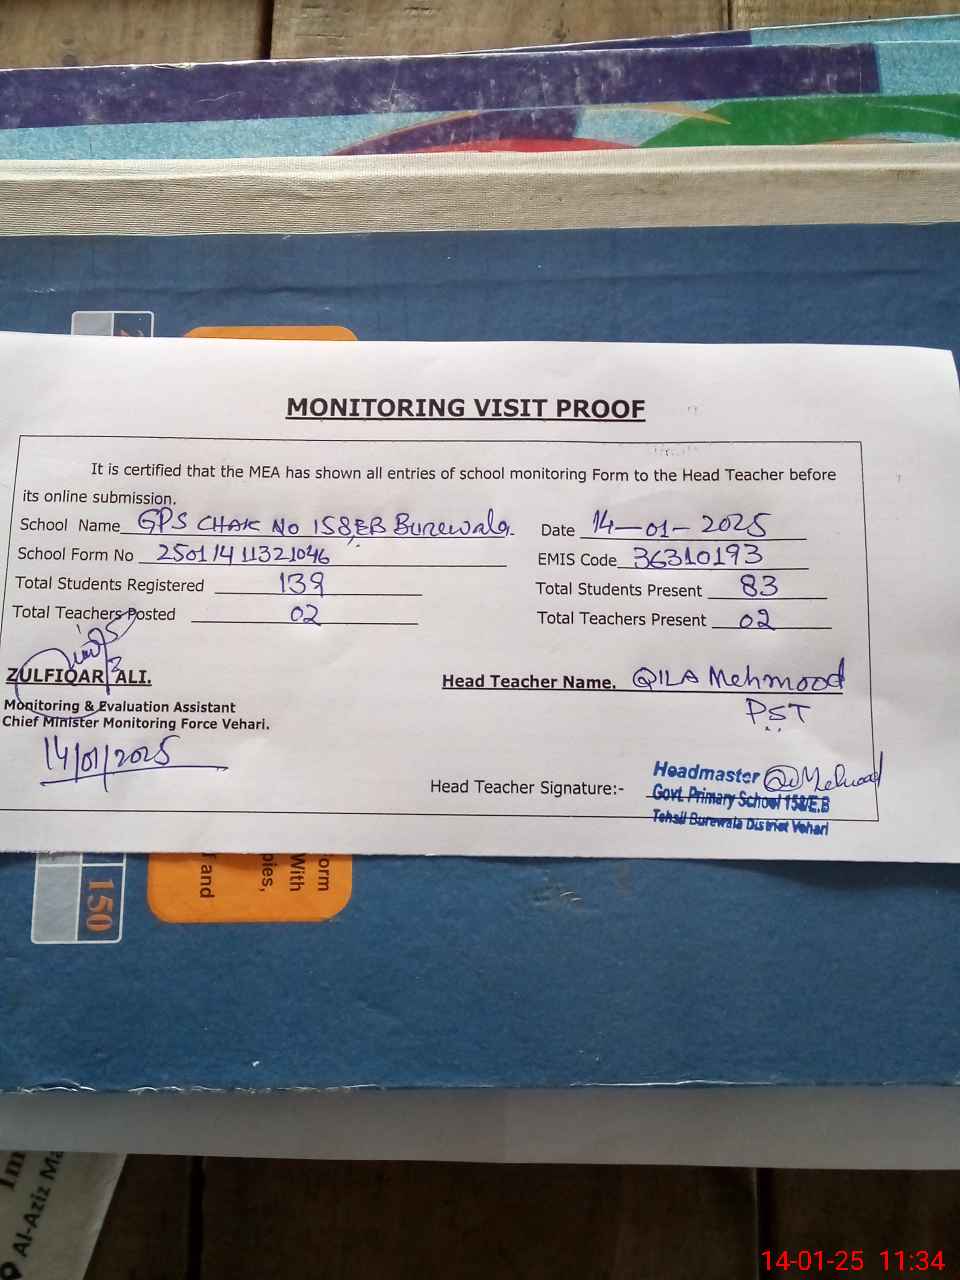 MONITORING VISIT PROOF
It is certified that the MEA has shown all entries of school monitoring Form to the Head Teacher before
its online submission.
School Name GPS CHAK No 158,EB Burewala.
Date 14-01-2025
School Form No 25011411321046
EMIS Code 36310193
Total Students Registered 139
Total Students Present 83
Total Teachers Posted 02
Total Teachers Present 02
ZULFIQAR ALI.
Monitoring & Evaluation Assistant
Chief Minister Monitoring Force Vehari.
14/01/2025
Head Teacher Name. QILA Mehmood
PST
Head Teacher Signature:-
Headmaster
Govt. Primary School 158/E.B
Tehsil Burewala District Vehari
150
orm
With
pies,
and
Al-Aziz Ma
14-01-25 11:34